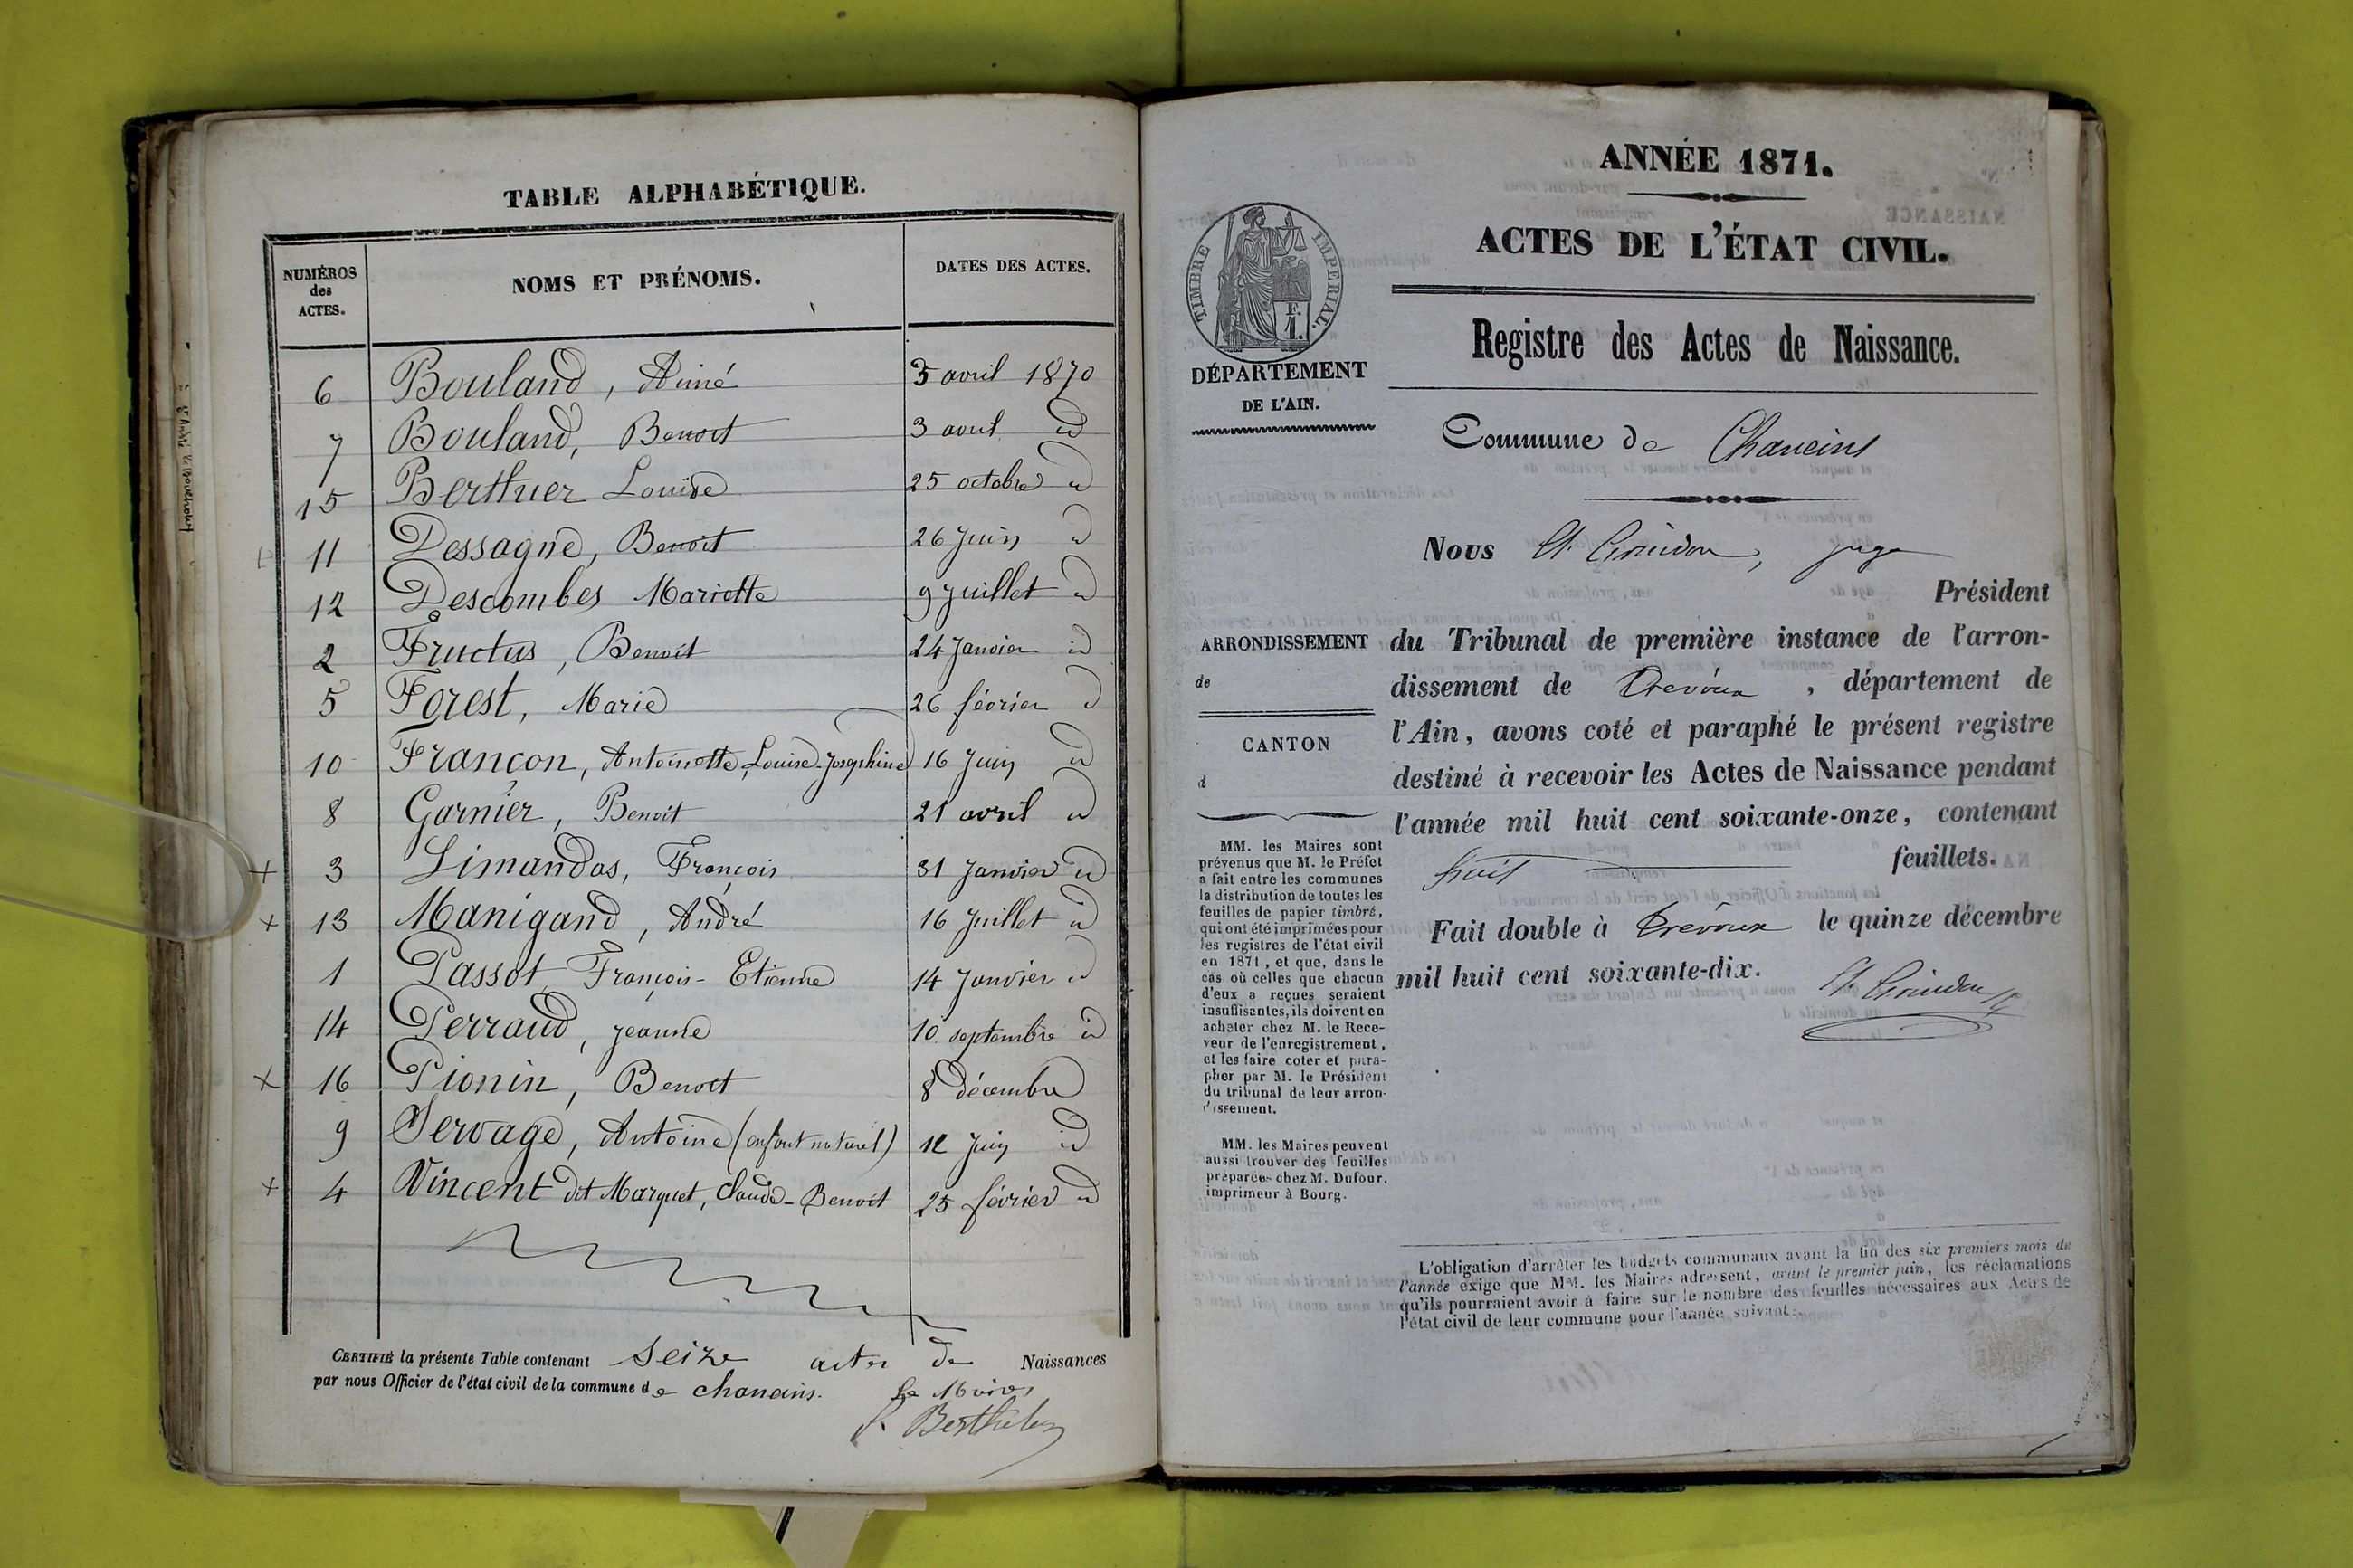 TABLE ALPHABÉTIQUE.
NUMÉROS des ACTES.
NOMS ET PRÉNOMS.
DATES DES ACTES.
6 Bouland, Aimé 3 avril 1870
7 Bouland, Benoit 3 avril id
15 Berthier Louise 25 octobre id
11 Dessagne, Benoit 26 Juin id
12 Descombes Mariette 9 Juillet id
2 Fructus, Benoit 24 Janvier id
5 Forest, Marie 26 février id
10 Françon, Antoinette, Louise-Josephine 16 Juin id
8 Garnier, Benoit 21 avril id
+ 3 Limandas, François 31 Janvier id
+ 13 Manigand, André 16 Juillet id
1 Passot François-Etienne 14 Janvier id
14 Perraud, Jeanne 10 septembre id
+ 16 Pionin, Benoit 8 décembre
9 Servage, Antoine (enfant naturel) 12 Juin id
+ 4 Vincent dit Marquet, Claude-Benoit 25 février id
CERTIFIÉ la présente Table contenant seize actes de Naissances
par nous Officier de l'état civil de la commune de chaneins.
Le Maire
ANNÉE 1871.
ACTES DE L'ÉTAT CIVIL.
TIMBRE IMPÉRIAL.
Registre des Actes de Naissance.
DÉPARTEMENT
DE L'AIN.
Commune de Chaneins
Nous juge
Président
ARRONDISSEMENT
de
CANTON
d
du Tribunal de première instance de l'arron-
dissement de Trévoux, département de
l'Ain, avons coté et paraphé le présent registre
destiné à recevoir les Actes de Naissance pendant
l'année mil huit cent soixante-onze, contenant
huit feuillets.
Fait double à Trévoux le quinze décembre
mil huit cent soixante-dix.
MM. les Maires sont
prévenus que M. le Préfet
a fait entre les communes
la distribution de toutes les
feuilles de papier timbré,
qui ont été imprimées pour
les registres de l'état civil
en 1871, et que, dans le
cas où celles que chacun
d'eux a reçues seraient
insuffisantes, ils doivent en
acheter chez M. le Rece-
veur de l'enregistrement,
et les faire coter et para-
pher par M. le Président
du tribunal de leur arron-
dissement.
MM. les Maires peuvent
aussi trouver des feuilles
préparées chez M. Dufour,
imprimeur à Bourg.
L'obligation d'arrêter les budgets communaux avant la fin des six premiers mois de
l'année exige que MM. les Maires adressent, avant le premier juin, les réclamations
qu'ils pourraient avoir à faire sur le nombre des feuilles nécessaires aux Actes de
l'état civil de leur commune pour l'année suivante.